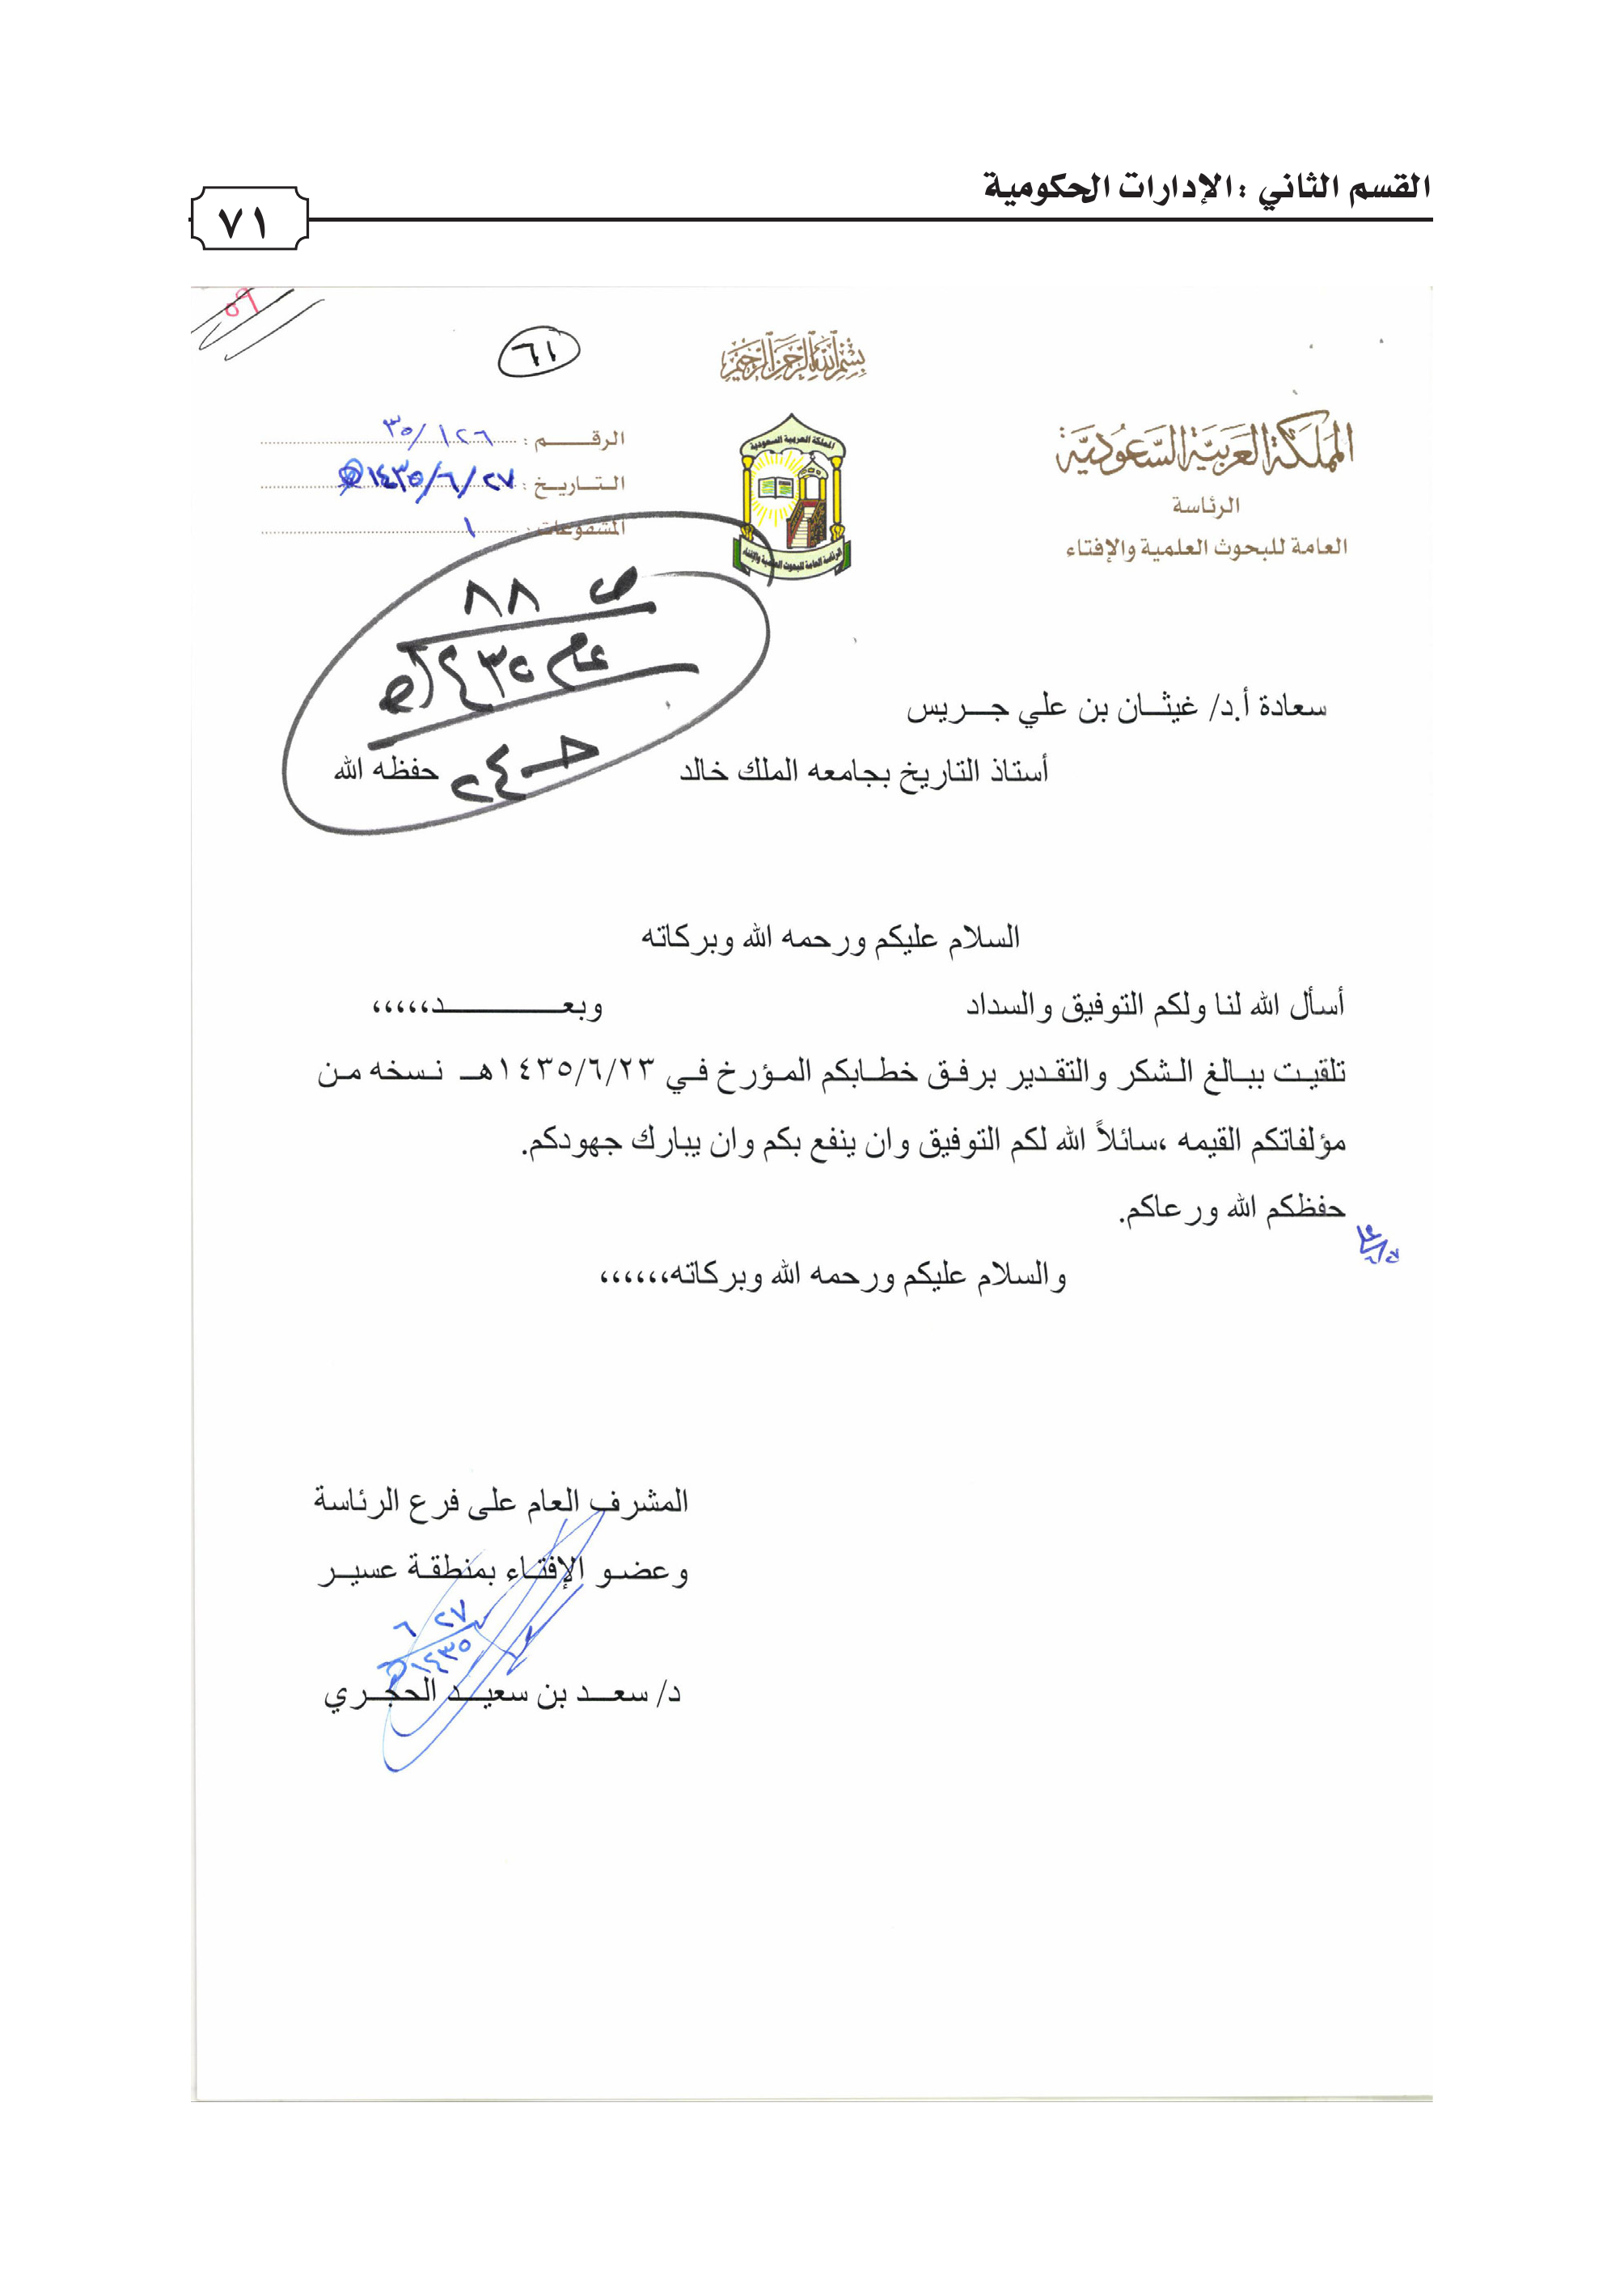 القسم الثاني : الإدارات الحكومية
٧١
٥٩
٦١
بسم الله الرحمن الرحيم
المملكة العربية السعودية
الرئاسة
العامة للبحوث العلمية والإفتاء
المملكة العربية السعودية
الرئاسة العامة للبحوث العلمية والإفتاء
الرقــــم : ٣٥/١٢٦
التـاريـخ : ١٤٣٥/٦/٢٧هـ
المشفوعات : ١
ص ٨٨
عام ١٤٣٥هـ
حـ ٢٤
سعادة أ.د/ غيثــان بن علي جــريس
أستاذ التاريخ بجامعه الملك خالد حفظه الله
السلام عليكم ورحمه الله وبركاته
أسأل الله لنا ولكم التوفيق والسداد وبعــــــــــــد،،،،،،
تلقيـت ببـالغ الـشكر والتقـدير برفـق خطـابكم المـؤرخ فـي ١٤٣٥/٦/٢٣هــ نـسخه مـن
مؤلفاتكم القيمه ،سائلاً الله لكم التوفيق وان ينفع بكم وان يبارك جهودكم.
حفظكم الله ورعاكم.
والسلام عليكم ورحمه الله وبركاته،،،،،،
المشرف العام على فرع الرئاسة
وعضـو الإفتـاء بمنطقـة عسيـر
٢٧ ٦
١٤٣٥هـ
د/ سعــد بن سعيــد الحجــري